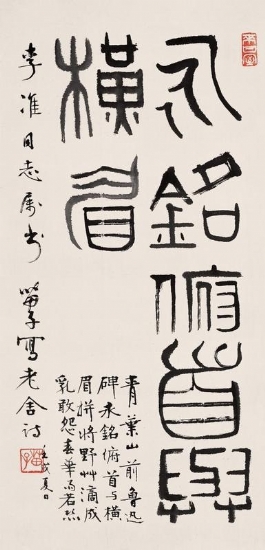 永銘俯首與
橫眉
青葉山前魯迅
碑永銘俯首与橫
眉拼將野艸滴成
乳敢怨春華
李准同志属书 苗子寫老舍詩
壬戌夏日